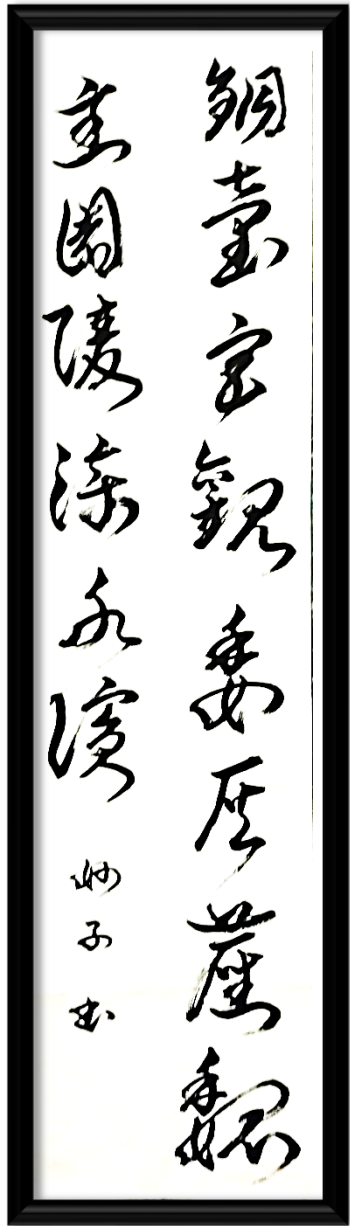 銅臺宮觀委灰塵魏
主園陵漳水濱 妙子书